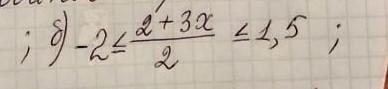 ; б) -2 ≤ (2 + 3x)/2 ≤ 1,5 ;